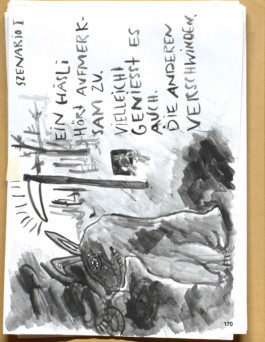 SZENARIO I
EIN HÄSLI
HÖRT AUFMERK-
SAM ZU.
VIELLEICHT
GENIESST ES
AUCH.
DIE ANDEREN
VERSCHWINDEN.
170